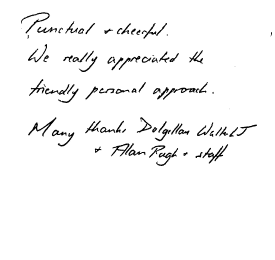 Punctual + cheerful.
We really appreciated the
friendly personal approach.
Many thanks Dolgellau
+ Alan Pugh + staff